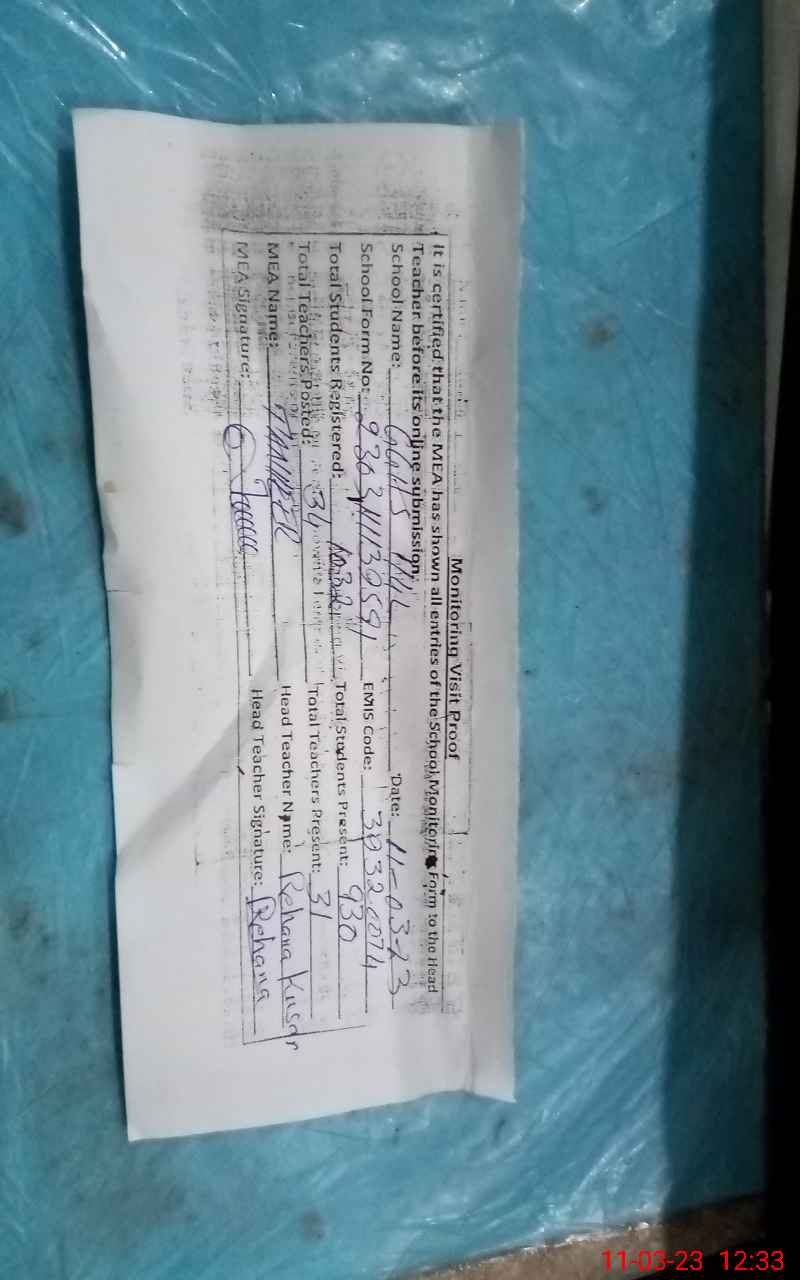 Monitoring Visit Proof
It is certified that the MEA has shown all entries of the School Monitoring Form to the Head
Teacher before its online submission.
School Name: GGHS Date: 11-03-23
School Form No: EMIS Code:
Total Students Registered: 1032 Total Students Present: 930
Total Teachers Posted: 34 Total Teachers Present: 31
MEA Name: Head Teacher Name: Rehana Kusar
MEA Signature: Head Teacher Signature: Rehana
11-03-23 12:33